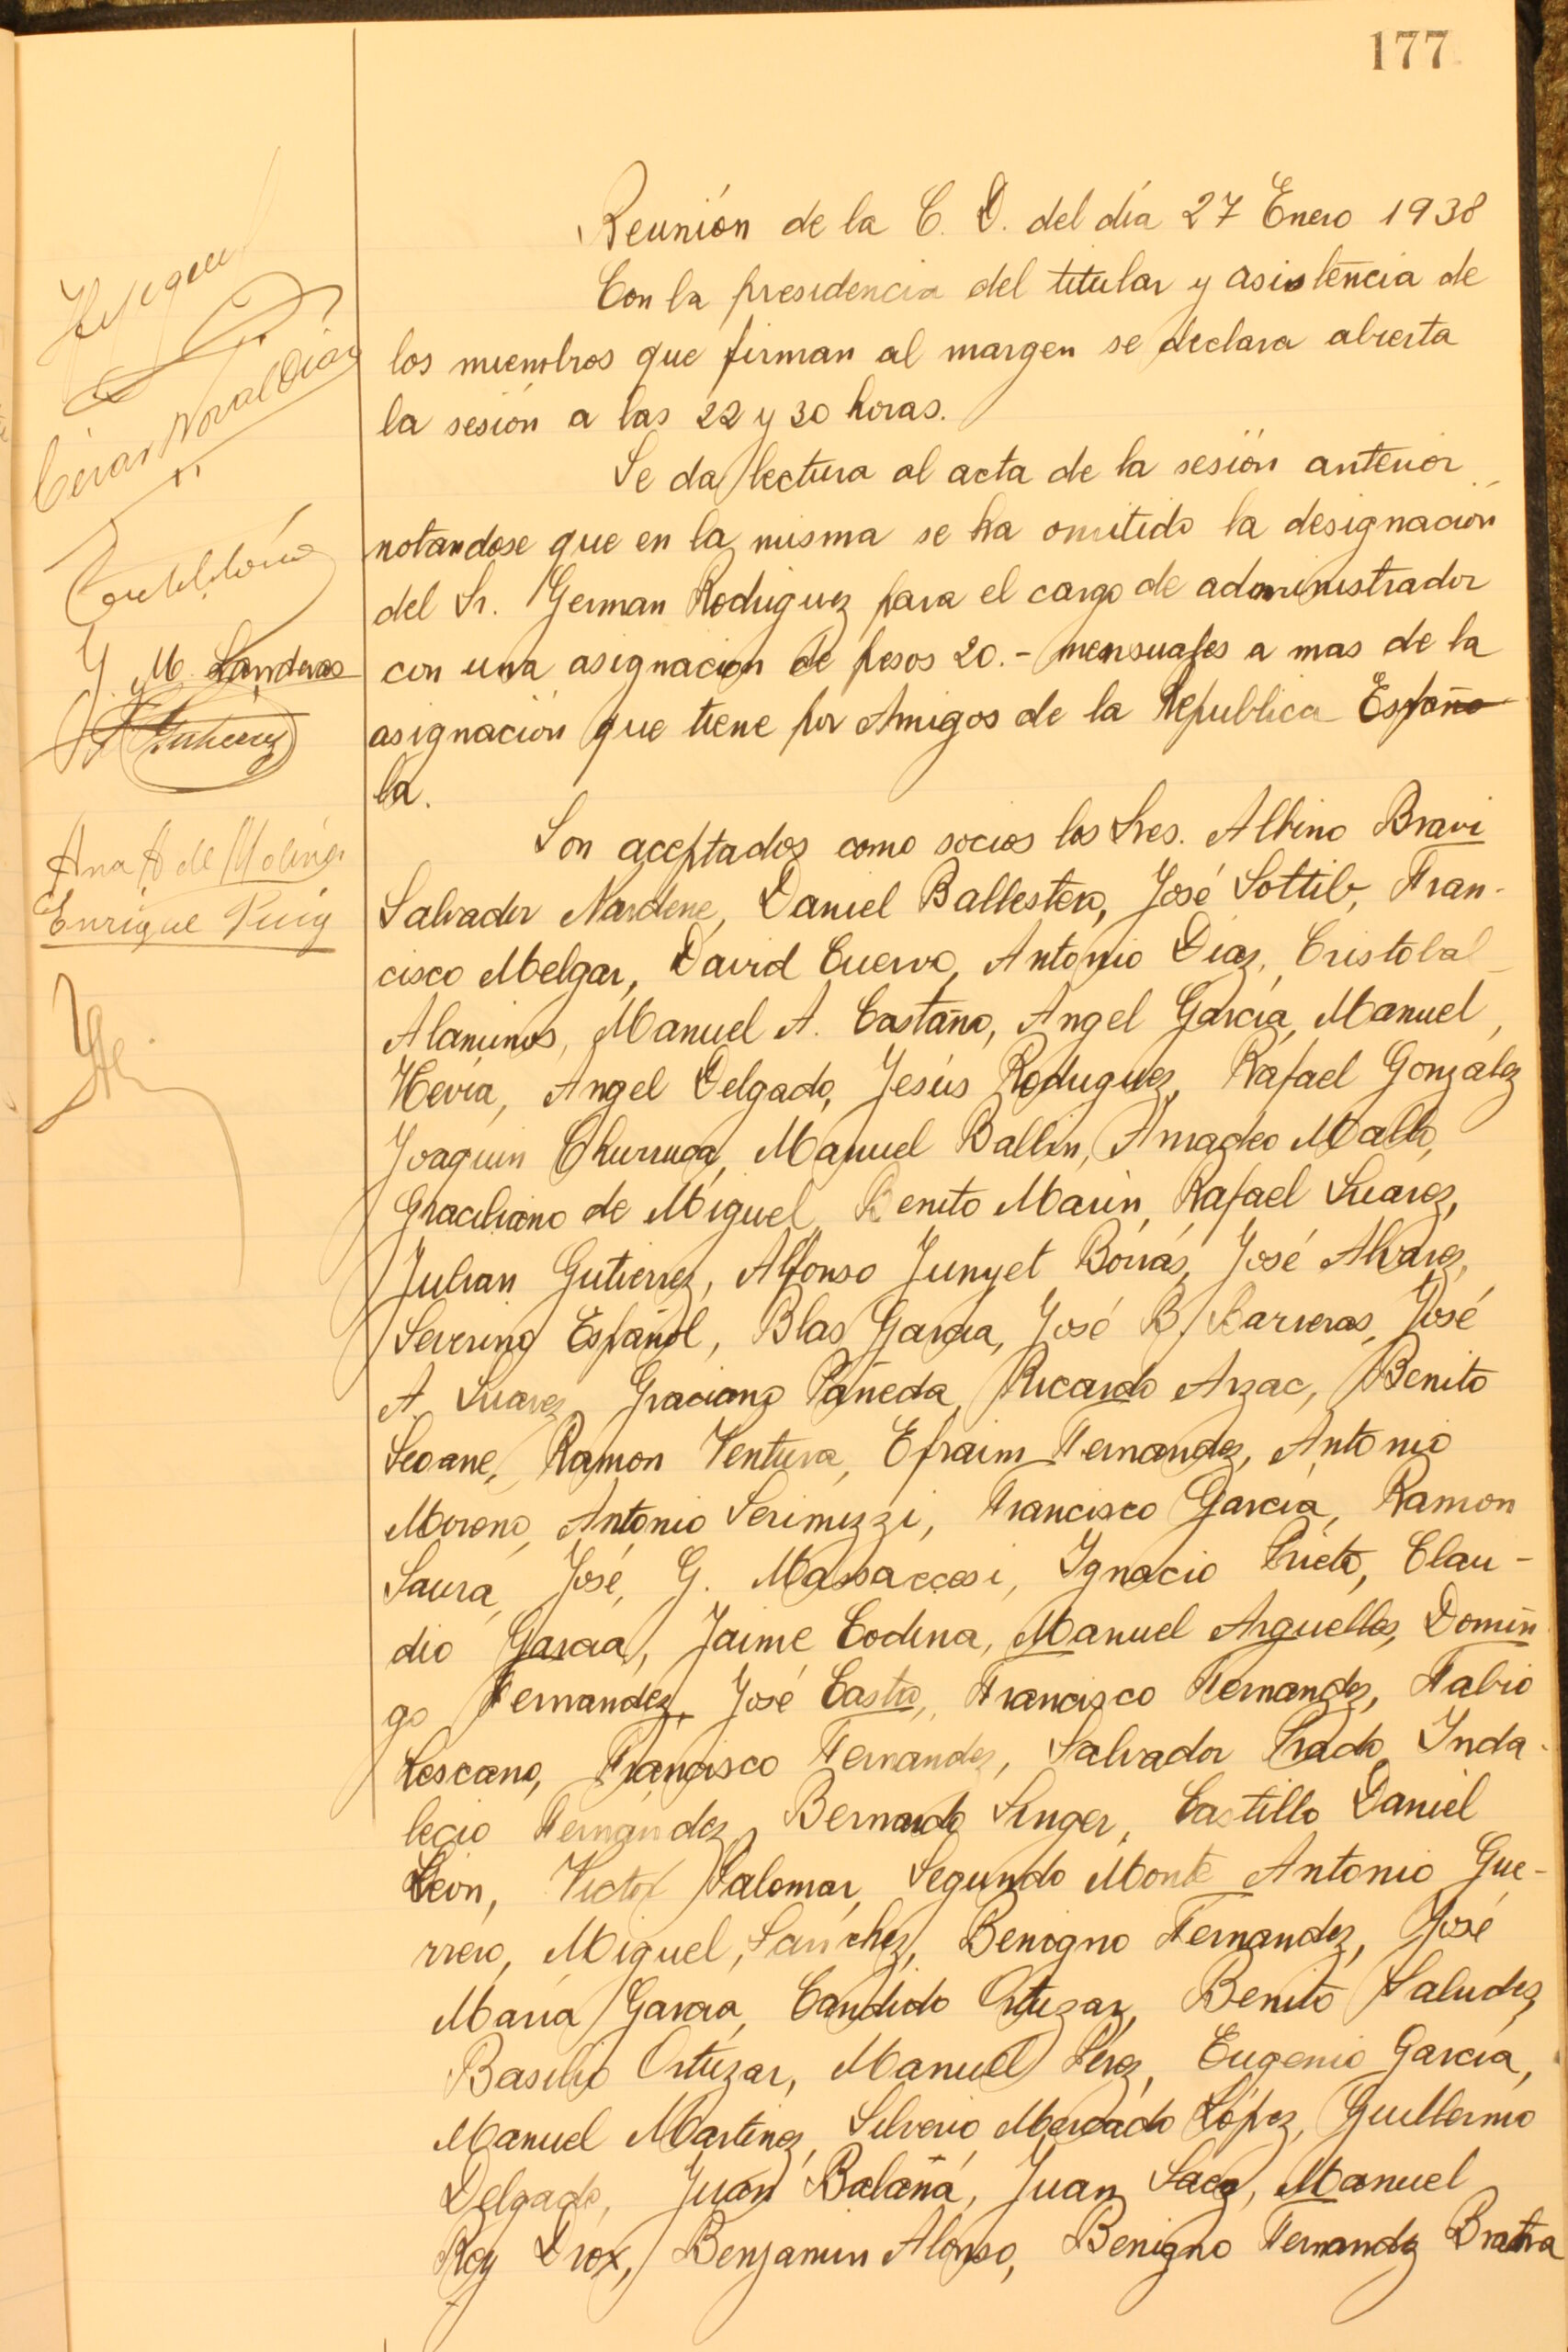 177
Reunión de la C. D. del día 27 Enero 1938
Con la presidencia del titular y asistencia de
los miembros que firman al margen se declara abierta
la sesión a las 22 y 30 horas.
Se da lectura al acta de la sesión anterior
notandose que en la misma se ha omitido la designación
del Sr. German Rodriguez para el cargo de administrador
con una asignacion de pesos 20.- mensuales a mas de la
asignación que tiene por Amigos de la Republica Españo
la.
Son aceptados como socios los Sres. Albino Bravi
Salvador Nardene, Daniel Ballestero, José Sottile, Fran-
cisco Melgar, David Cuervo, Antonio Diaz, Cristobal
Alaminos, Manuel A. Castaño, Angel García, Manuel
Hevia, Angel Delgado, Jesús Rodriguez, Rafael González
Joaquin Churruca, Manuel Ballin, Amadeo Mallo,
Graciliano de Miguel, Benito Marin, Rafael Suarez,
Julian Gutierrez, Alfonso Junyet Borrás, José Alvarez,
Severino Español, Blas Garcia, José B. Barreras, José
A. Suarez, Graciano Pañeda, Ricardo Arzac, Benito
Seoane, Ramon Ventura, Efraim Fernandez, Antonio
Moreno, Antonio Serimizzi, Francisco García, Ramon
Saura, José, G. Massaccesi, Ignacio Prieto, Clau-
dio Garcia, Jaime Codina, Manuel Arguelles, Domin
go Fernandez, José Castro, Francisco Fernandez, Fabio
Lescano, Francisco Fernandez, Salvador Prado, Inda-
lecio Fernández, Bernardo Singer, Castillo Daniel
León, Victor Palomar, Segundo Monte Antonio Gue-
rrero, Miguel Sanchez, Benigno Fernandez, José
María Garcia, Candido Ortuzar, Benito Saludez
Basilio Ortúzar, Manuel Pérez, Eugenio García,
Manuel Martinez, Silverio Mercado López, Guillermo
Delgado, Juan Balañá, Juan Sáez, Manuel
Roy Drox, Benjamin Alonso, Benigno Fernandez
Cesar Noval Diaz
J. M. Landeras
Gutierrez
Ana A de Molina
Enrique Puig